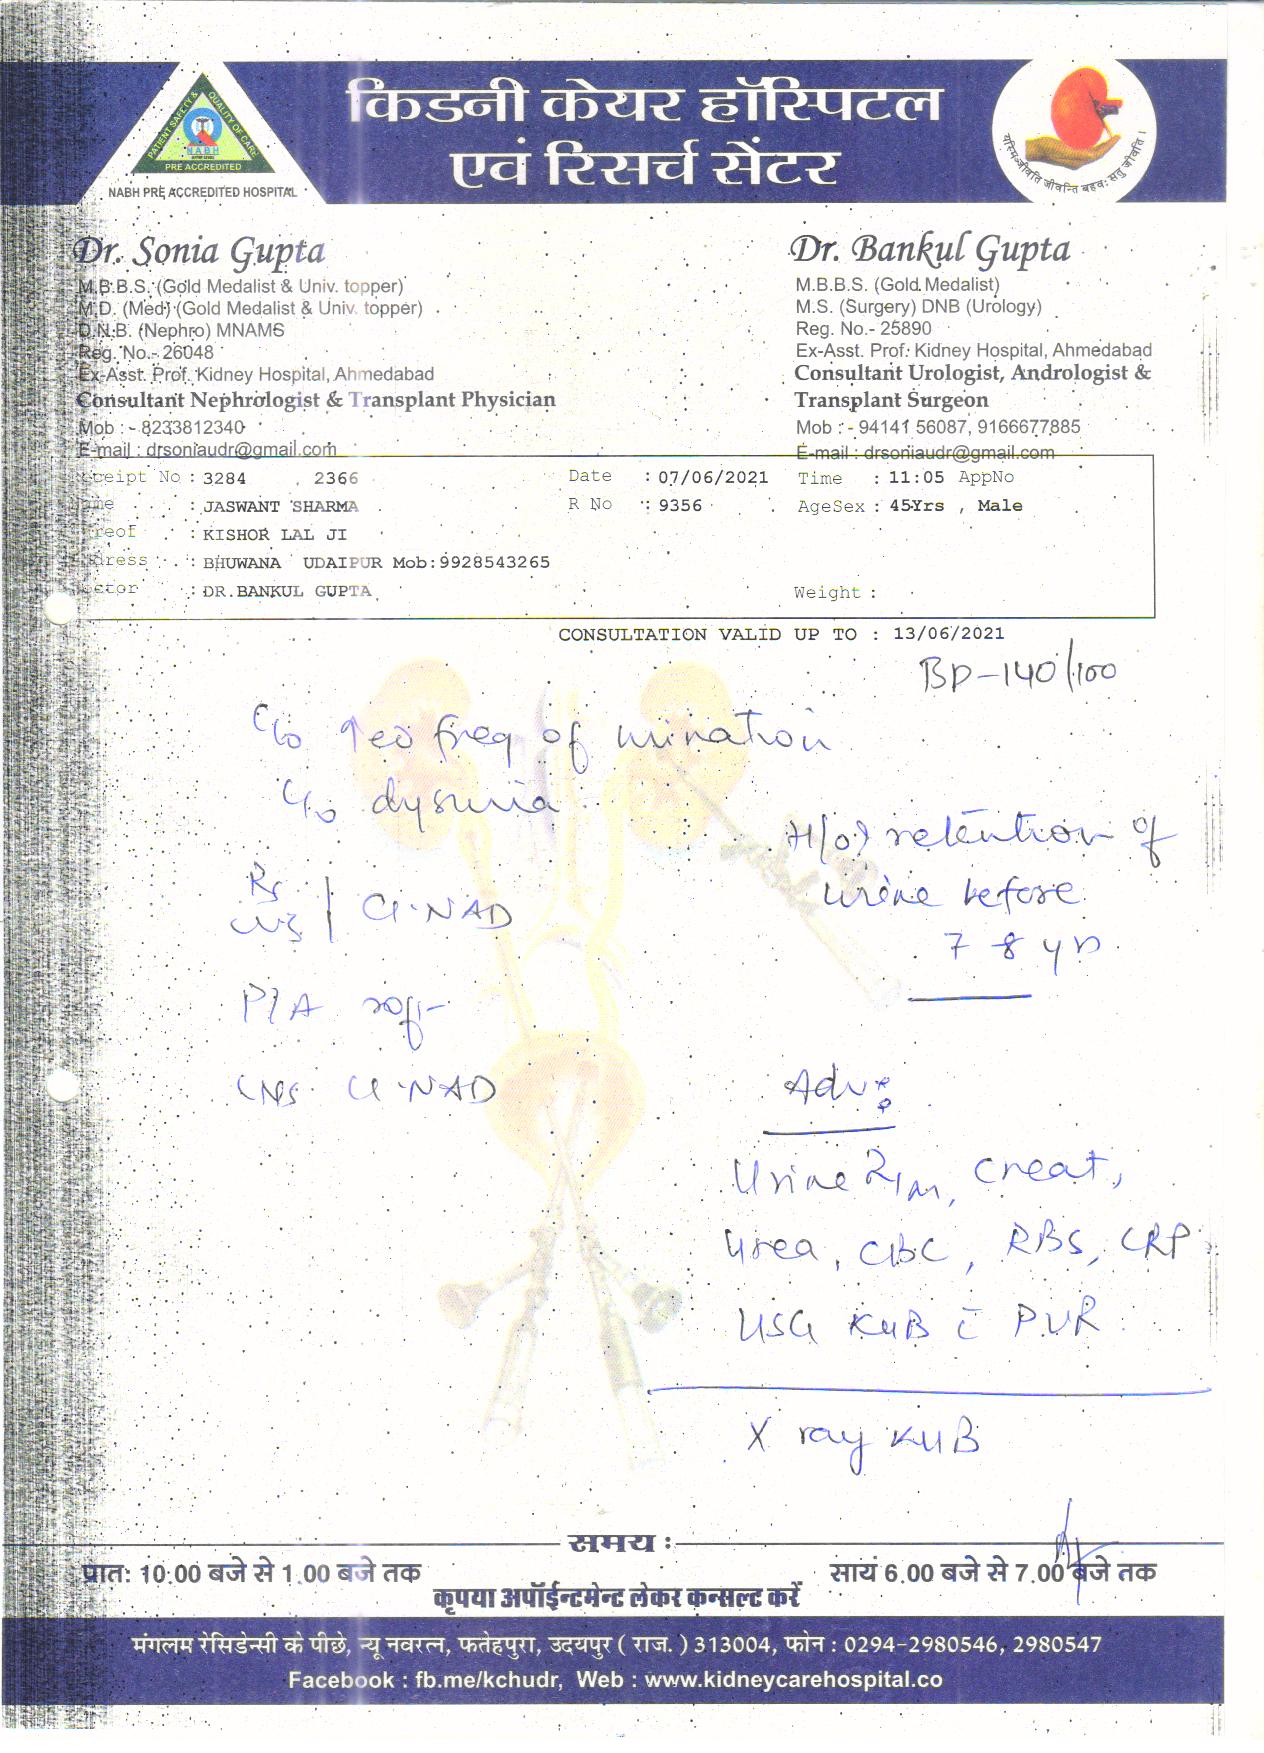 किडनी केयर हॉस्पिटल
एवं रिसर्च सेंटर
PATIENT SAFETY & QUALITY OF CARE
NABH
PRE ACCREDITED
NABH PRE ACCREDITED HOSPITAL
Dr. Sonia Gupta
M.B.B.S. (Gold Medalist & Univ. topper)
M.D. (Med) (Gold Medalist & Univ. topper)
D.N.B. (Nephro) MNAMS
Reg. No.- 26048
Ex-Asst. Prof. Kidney Hospital, Ahmedabad
Consultant Nephrologist & Transplant Physician
Mob : - 8233812340
E-mail : drsoniaudr@gmail.com
Dr. Bankul Gupta
M.B.B.S. (Gold Medalist)
M.S. (Surgery) DNB (Urology)
Reg. No.- 25890
Ex-Asst. Prof. Kidney Hospital, Ahmedabad
Consultant Urologist, Andrologist &
Transplant Surgeon
Mob : - 94141 56087, 9166677885
E-mail : drsoniaudr@gmail.com
Receipt No : 3284 2366 Date : 07/06/2021 Time : 11:05 AppNo
Name : JASWANT SHARMA R No : 9356 AgeSex : 45Yrs , Male
: KISHOR LAL JI
Address : BHUWANA UDAIPUR Mob:9928543265
Doctor : DR.BANKUL GUPTA Weight :
CONSULTATION VALID UP TO : 13/06/2021
BP-140/100
C/o ↑ed freq of urination
C/o dysuria
H/o retention of
urine before
7 8 yrs
RS
CVS | Cl. NAD
P/A soft
CNS Cl. NAD
Adv:
Urine R/M, Creat,
Urea, CBC, RBS, CRP
USG KUB c̄ PVR
X ray KUB
समय :
प्रातः 10.00 बजे से 1.00 बजे तक सायं 6.00 बजे से 7.00 बजे तक
कृपया अपॉईन्टमेन्ट लेकर कन्सल्ट करें
मंगलम रेसिडेन्सी के पीछे, न्यू नवरत्न, फतेहपुरा, उदयपुर ( राज. ) 313004, फोन : 0294-2980546, 2980547
Facebook : fb.me/kchudr, Web : www.kidneycarehospital.co